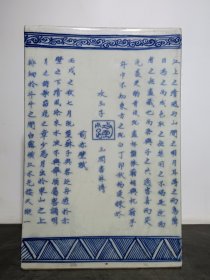 江上之清風與山間之明月耳得之而為聲
目遇之而成色取之無禁用之不竭是造物
者之無盡藏也而吾與子之所共適客喜而笑
洗盞更酌肴核既盡杯盤狼藉相與枕藉乎
舟中不知東方之既白丁卯秋
前赤壁賦
壬戌之秋七月既望蘇子與客泛舟遊於赤
壁之下清風徐來水波不興舉酒屬客誦明
月之詩歌窈窕之章少焉月出於東山之上
徘徊於斗牛之間白露橫江水光接天縱